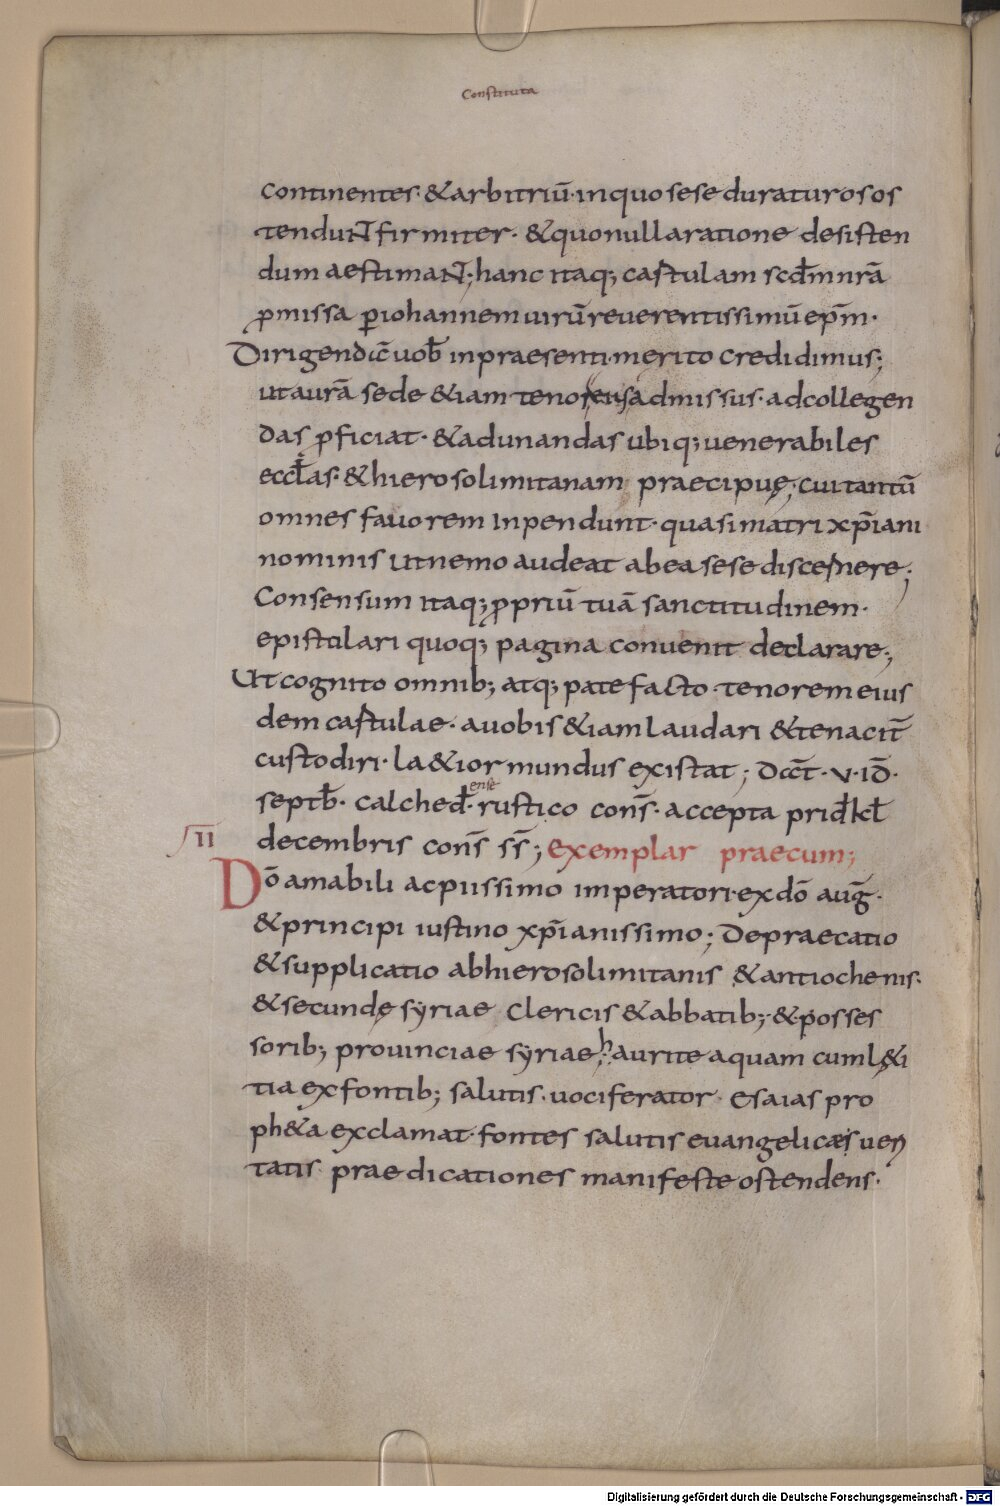 Constituta
continentes· &arbitriū· inquo sese duraturos os
tenduNt firmiter· &quonulla ratione desisten
dum aestimaNt; hanc itaq; castulam scdm nrā
pmissa piohannem uirū reuerentissimū epm·
Dirigendā uob inpraesenti· merito credidimus;
ut aurā sede &iam tenor eius admissus· adcollegen
das pficiat· &adunandas ubiq; uenerabiles
eccłas· &hierosolimitanam praecipuę; cui tantū
omnes fauorem inpendunt· quasi matri xpiani
nominis ut nemo audeat abea sese discernere;
Consensum itaq; ppriū tuā sanctitudinem·
epistulari quoq; pagina conuenit declarare;
Ut cognito omnib; atq; patefacto· tenorem eius
dem castulae· auobis &iam laudari &tenacit
custodiri· la&ior mundus existat; Dct· v· id·
septb· calched·ense rustico cons· accepta prid kł
decembris cons ss; exemplar praecum;
II
Dō amabili acpiissimo imperatori· ex dō aug·
&principi iustino xpianissimo; Depraecatio
&supplicatio abhierosolimitanis &antiochenis·
&secundę syriae clericis &abbatib; &posses
sorib; prouinciae syriae h aurite aquam cum l&i
tia ex fontib; salutis· uociferator esaias pro
ph&a exclamat· fontes salutis euangelicaes ueri
tatis praedicationes manifeste ostendens·
Digitalisierung gefördert durch die Deutsche Forschungsgemeinschaft - DFG